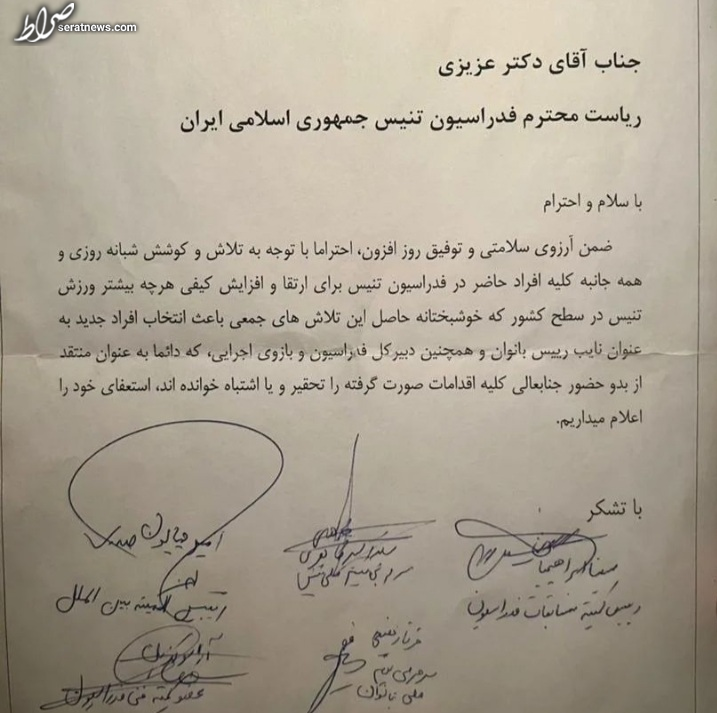 صراط
seratnews.com
جناب آقای دکتر عزیزی
ریاست محترم فدراسیون تنیس جمهوری اسلامی ایران
با سلام و احترام
ضمن آرزوی سلامتی و توفیق روز افزون، احتراما با توجه به تلاش و کوشش شبانه روزی و
همه جانبه کلیه افراد حاضر در فدراسیون تنیس برای ارتقا و افزایش کیفی هرچه بیشتر ورزش
تنیس در سطح کشور که خوشبختانه حاصل این تلاش های جمعی باعث انتخاب افراد جدید به
عنوان نایب رییس بانوان و همچنین دبیرکل فدراسیون و بازوی اجرایی، که دائما به عنوان منتقد
از بدو حضور جنابعالی کلیه اقدامات صورت گرفته را تحقیر و یا اشتباه خوانده اند، استعفای خود را
اعلام میداریم.
با تشکر
رییس کمیته مسابقات فدراسیون
سرمربی تیم ملی تنیس
امیر همایون
رییس کمیته بین الملل
سرمربی تیم
ملی بانوان
عضو کمیته فنی فدراسیون